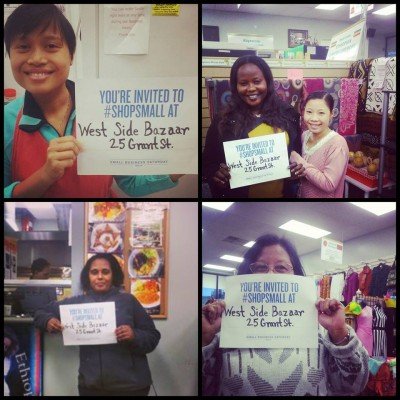 YOU'RE INVITED TO
#SHOPSMALL AT
West Side Bazaar
25 Grant St.
SMALL BUSINESS SATURDAY
YOU'RE INVITED TO
#SHOPSMALL AT
West Side Bazaar
25 Grant St.
YOU'RE INVITED TO
#SHOPSMALL AT
West Side Bazaar
25 Grant St.
Ethiop
YOU'RE INVITED TO
#SHOPSMALL AT
West Side Bazaar
25 Grant St.